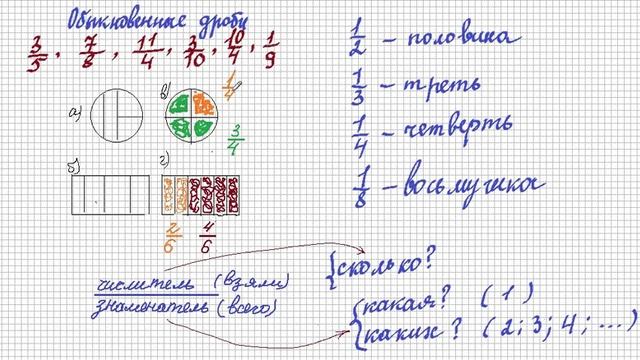 Обыкновенные дроби
3/5, 7/8, 11/4, 3/10, 10/4, 1/9
а)
в)
1/4
3/4
б)
г)
2/6 4/6
1/2 - половина
1/3 - треть
1/4 - четверть
1/8 - восьмушка
числитель (взяли)
знаменатель (всего)
{сколько?
{какая? (1)
каких? (2; 3; 4; ...)